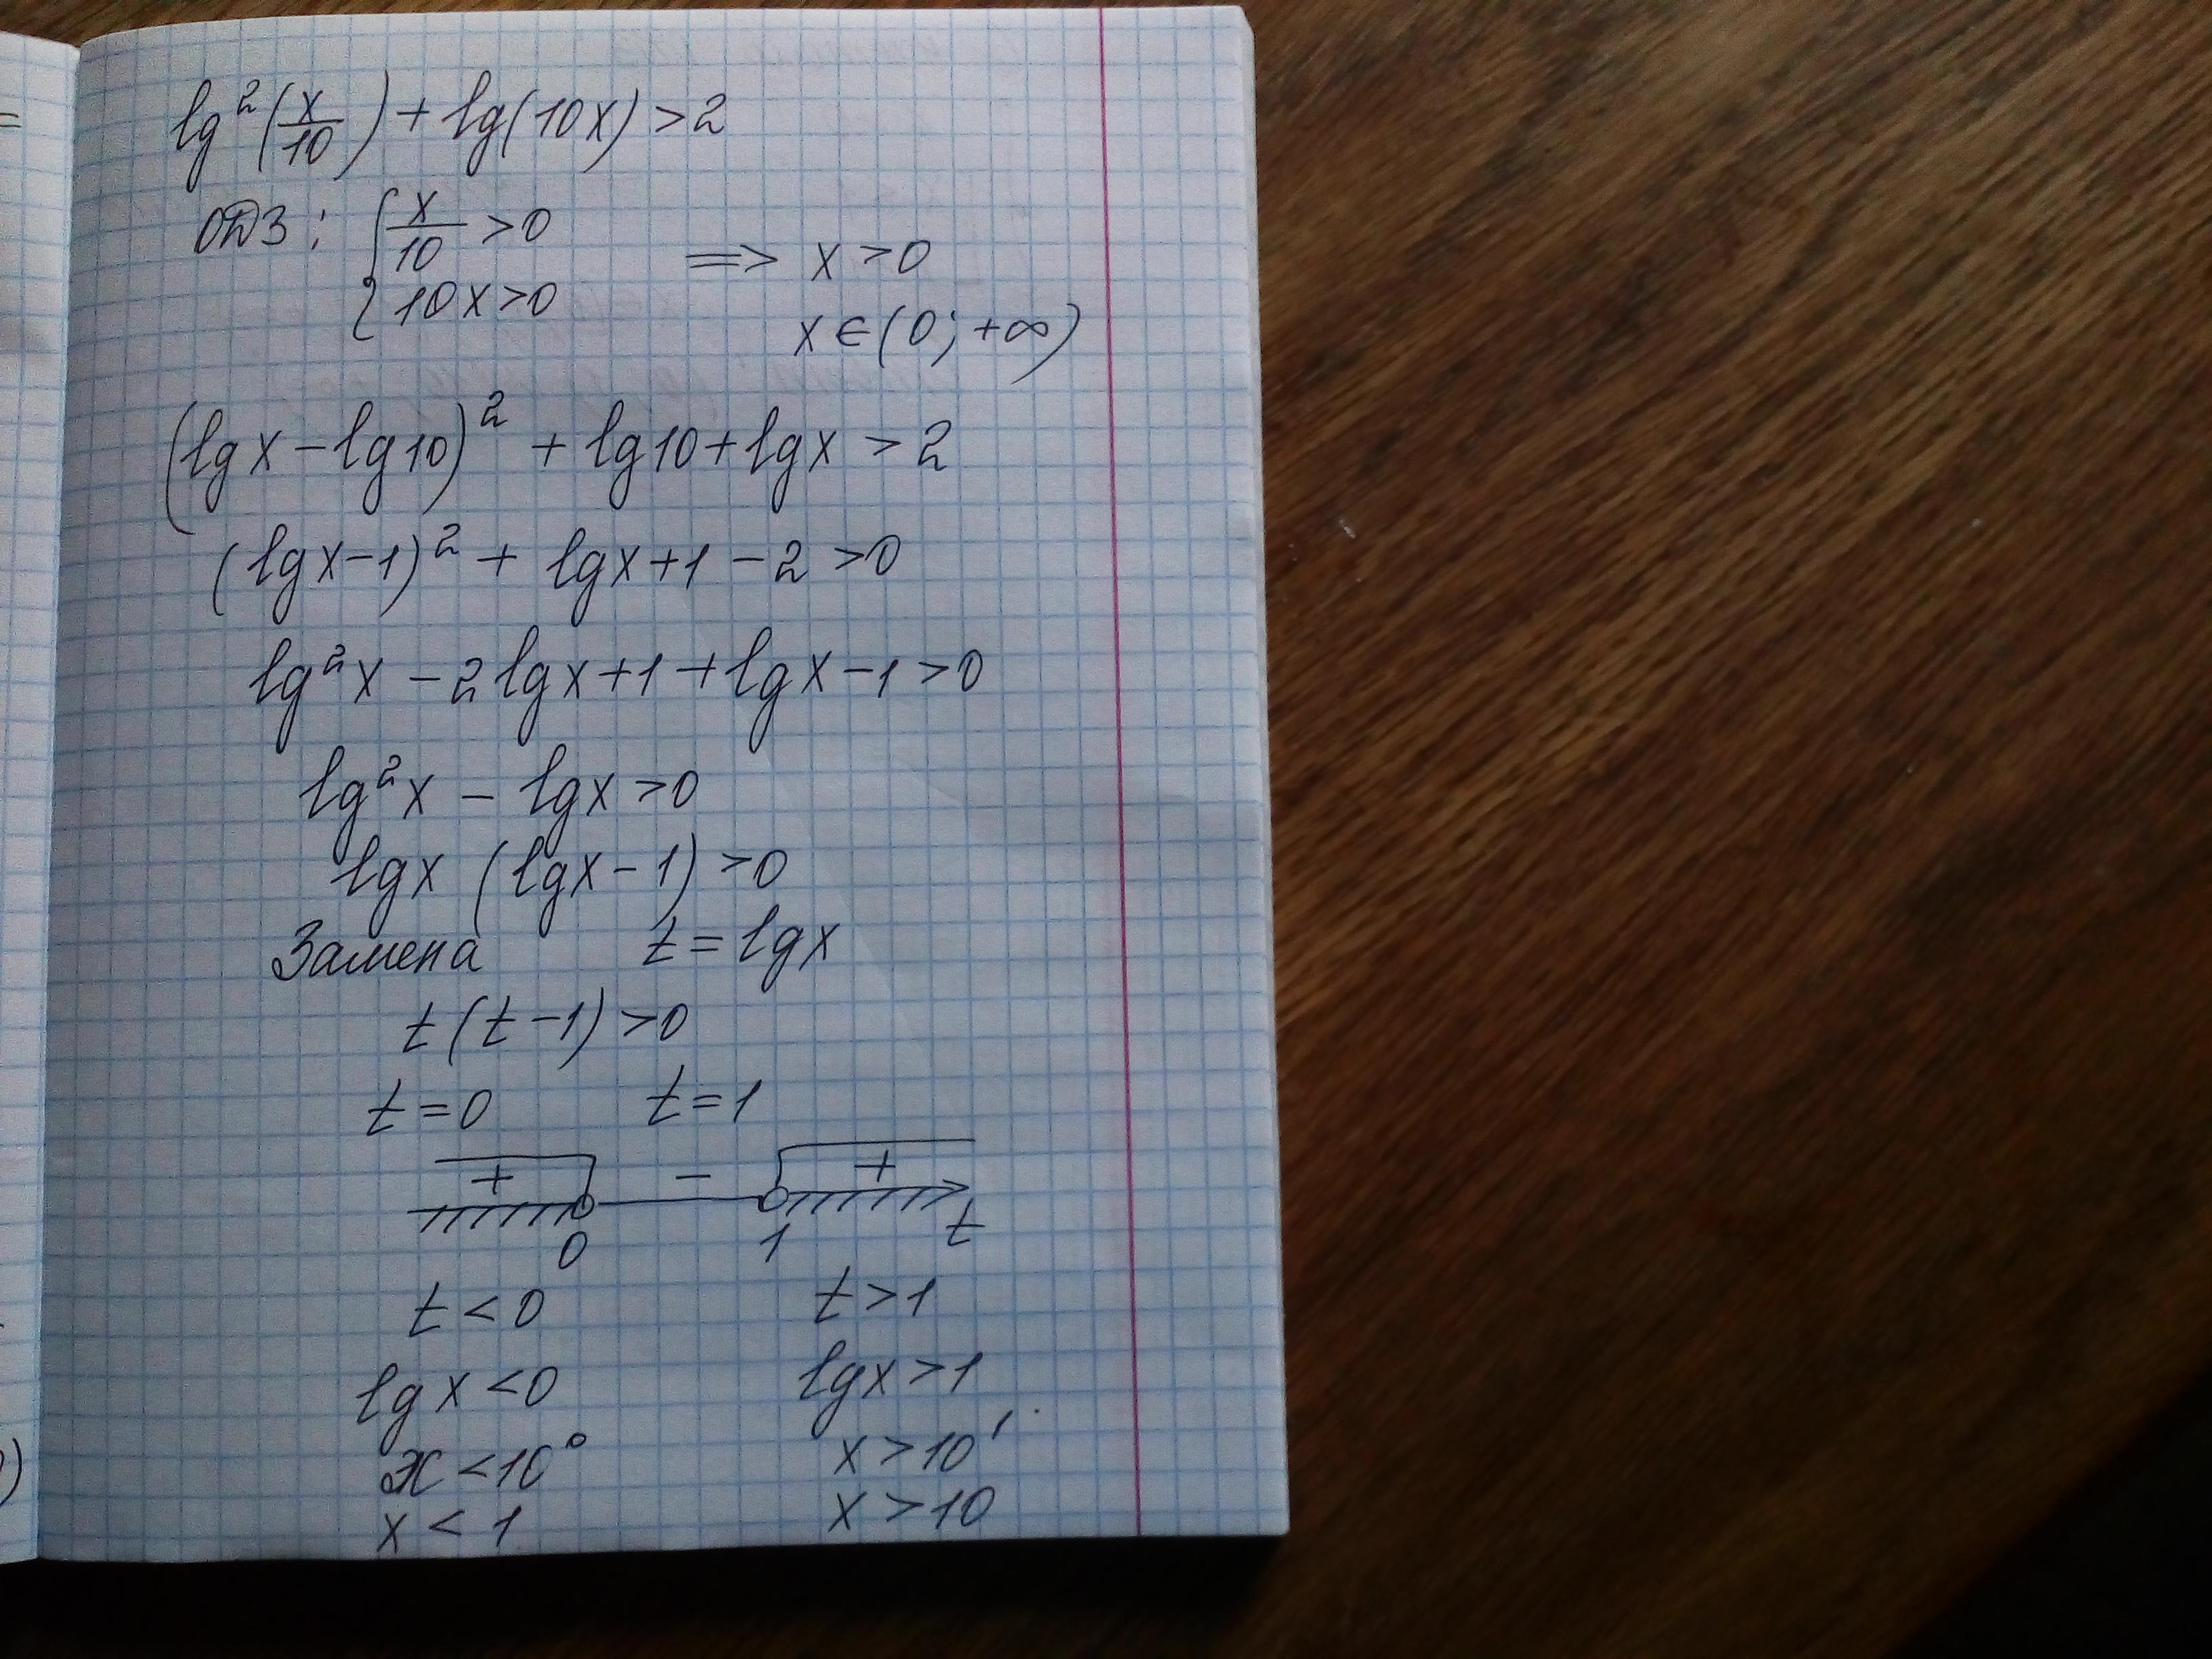 lg²(x/10) + lg(10x) > 2
ОДЗ: { x/10 > 0
10x > 0 => x > 0
x ∈ (0; +∞)
(lgx - lg10)² + lg10 + lgx > 2
(lgx - 1)² + lgx + 1 - 2 > 0
lg²x - 2lgx + 1 + lgx - 1 > 0
lg²x - lgx > 0
lgx (lgx - 1) > 0
Замена t = lgx
t(t - 1) > 0
t = 0 t = 1
+ - +
0 1 t
t < 0 t > 1
lgx < 0 lgx > 1
x < 10⁰ x > 10¹
x < 1 x > 10